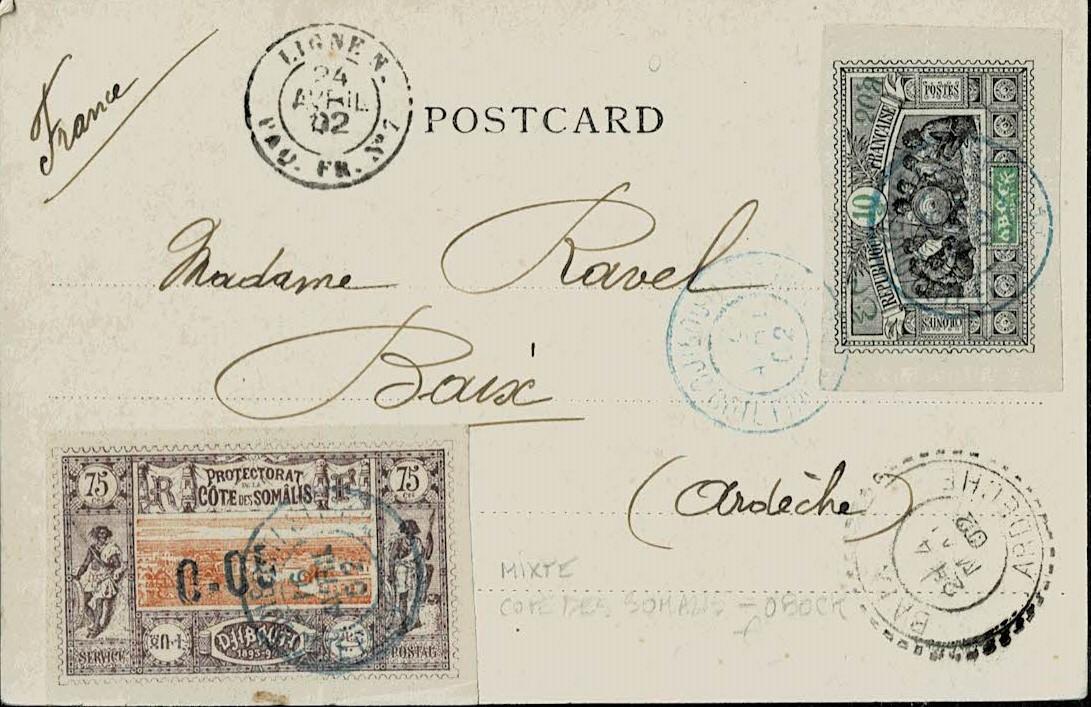 France
LIGNE N.
24
AVRIL
02
PAQ. FR. Nº 7
POSTCARD
Madame Ravel
Baix
(Ardèche)
POSTES
RÉPUBLIQUE FRANÇAISE
10
OBOCK
75
PROTECTORAT
DE LA
CÔTE DES SOMALIS
75
R F
0-05
DJIBOUTI
SERVICE
POSTAL
DJIBOUTI
AVRIL
02
MIXTE
COTE DES SOMALIS - OBOCK
BAIX
MAI
02
ARDECHE